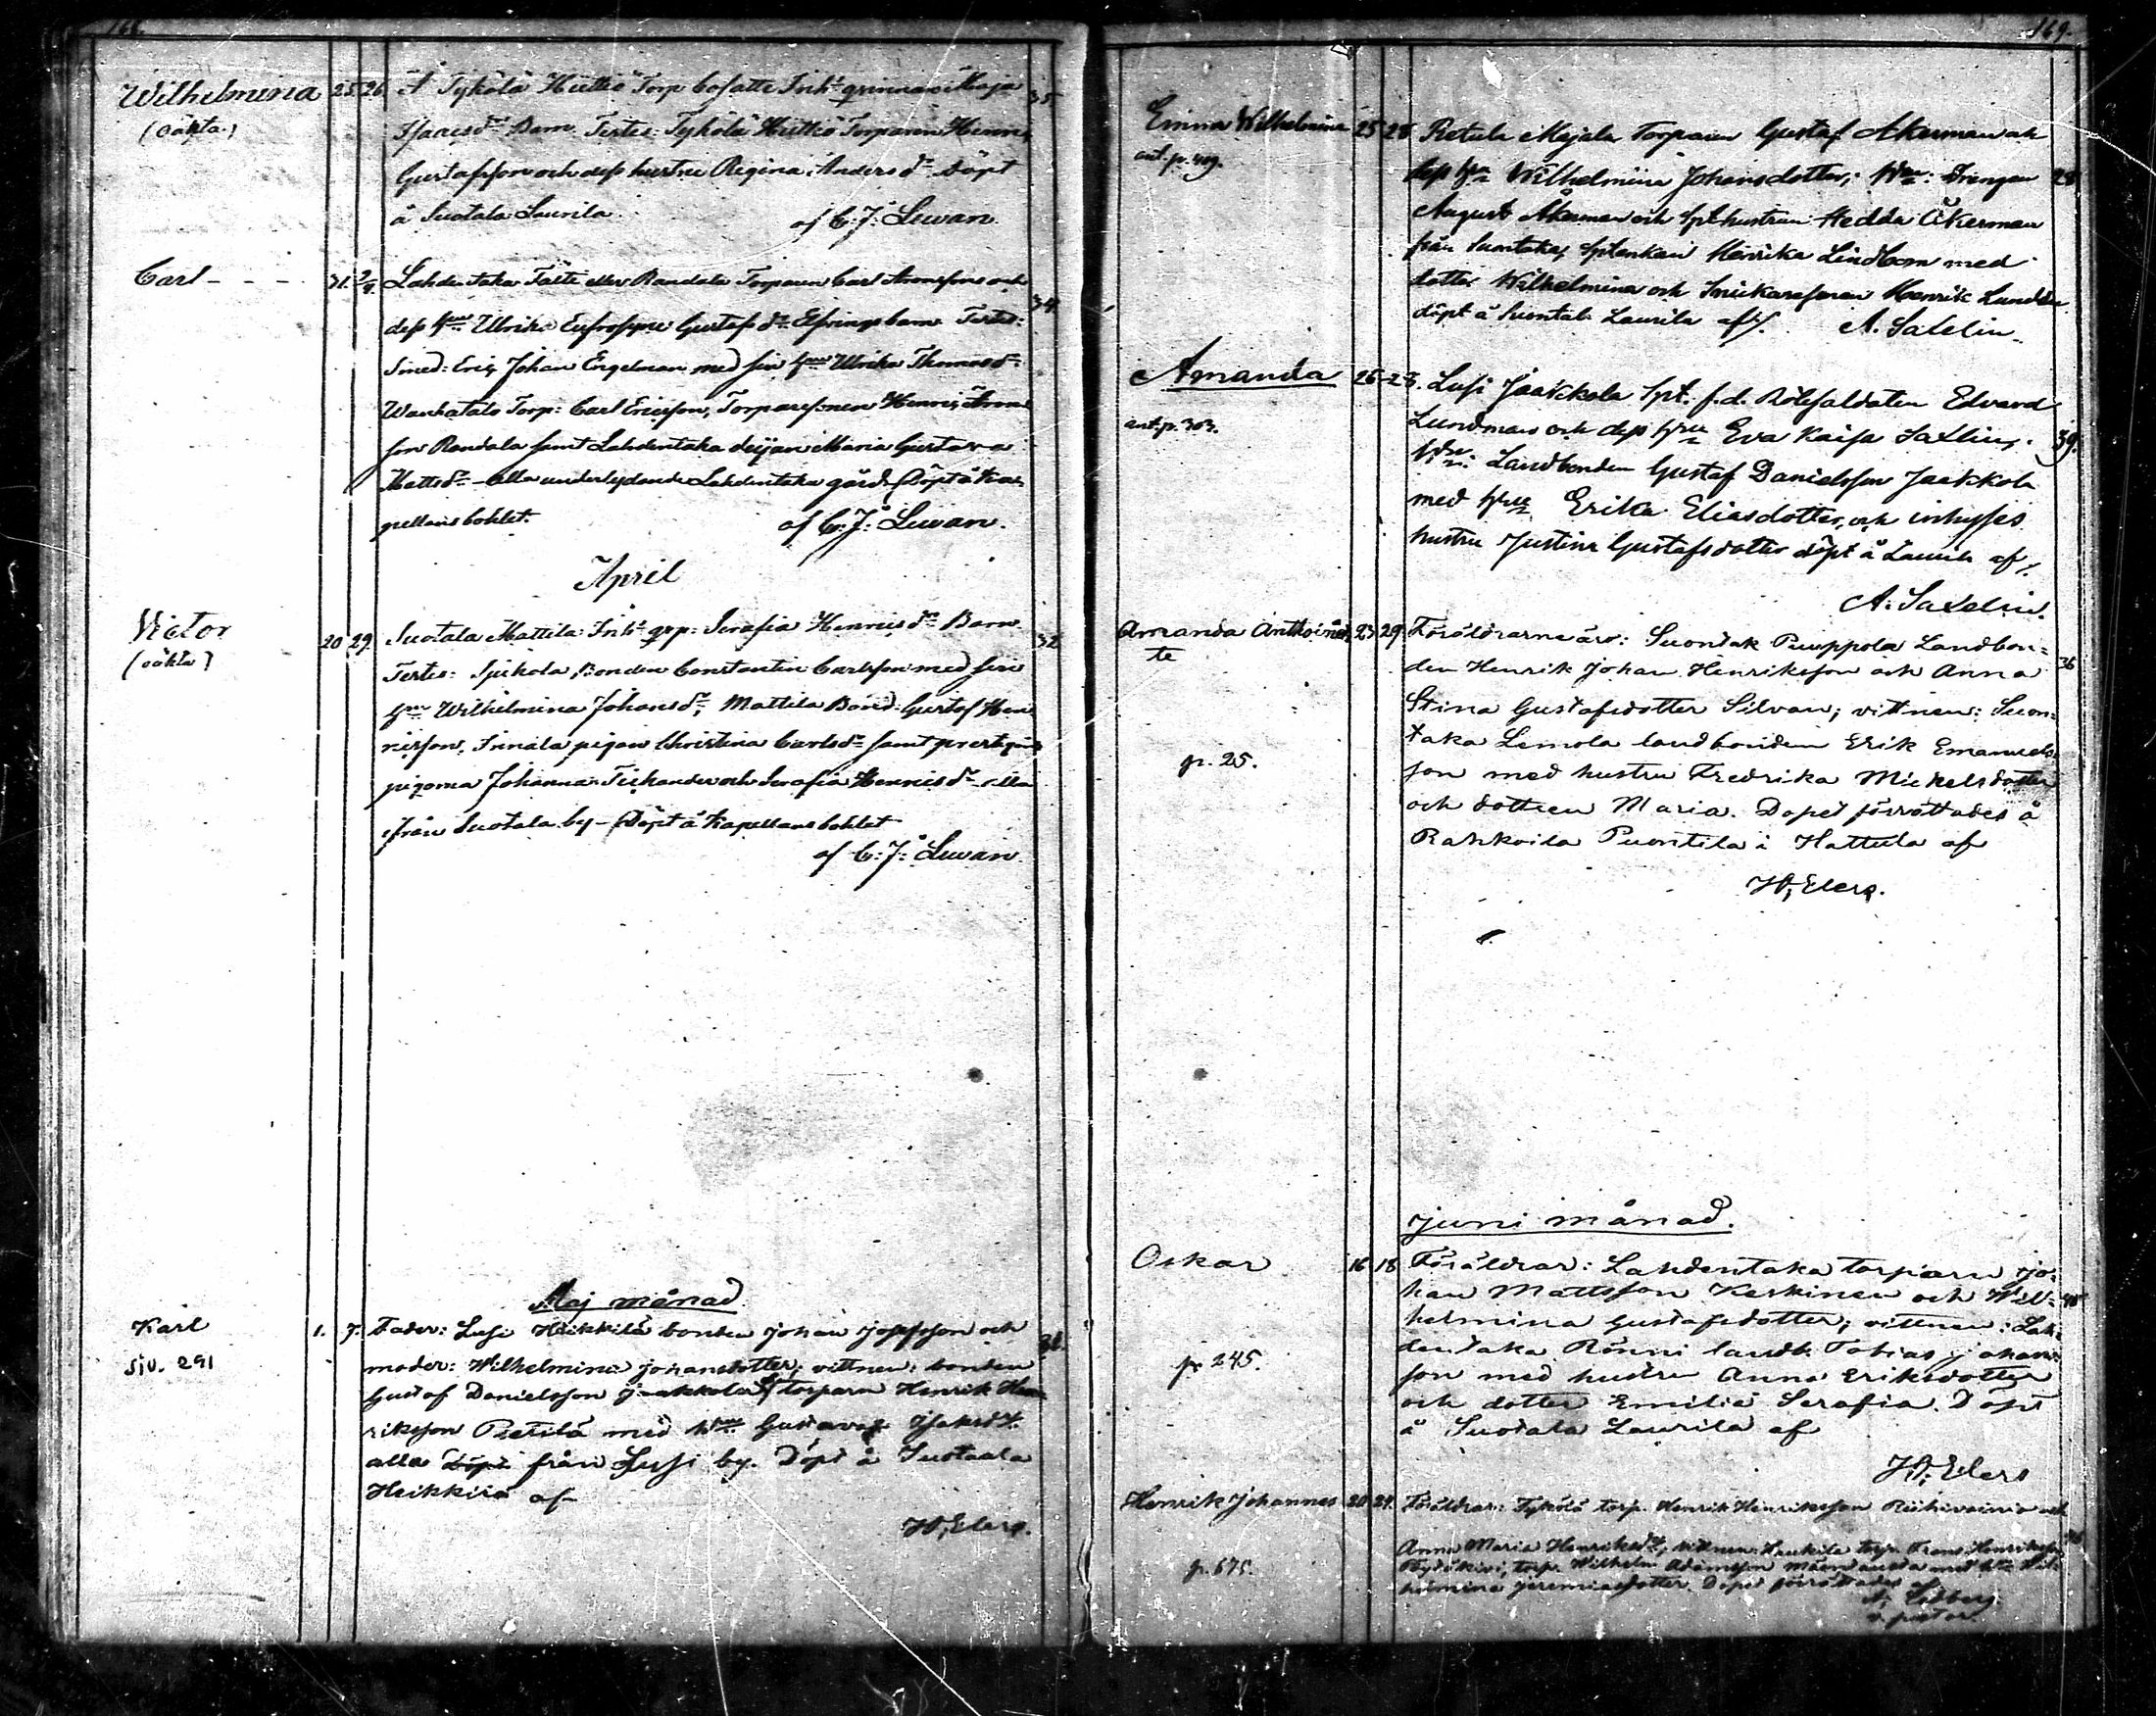 168.
Wilhelmina 25. 26. Å Tykölä Hüttiö Torp bosatte Inh:s qvinnan Maja 35.
(oäkta.) Isacsd:r Barn. Testes: Tykölä Hüttiö Torparen Henric
Gustafsson och dess hustru Regina Andersd:r döpt
å Suotala Laurila. af C. J. Lewan.
Carl - - - 31. 2/4. Lahdentaka Tälte eller Randala Torparen Carl Aronsson och 34.
dess h:u Ulrika Eufrosyne Gustafsd:r Elfvings barn Testes:
Smed: Eric Johan Engelman med sin h:u Ulrika Thomasd:r
Torp: Carl Ericsson, Torparesonen Henric Aron
son Randala samt Lahdentaka dejan Maria Gustava
Mattsd:r - alla underlydande Lahdentaka gård. Döpt å Ka
pellansbohlet. af C. J. Lewan.
April
Victor 20 29. Suotala Mattila Inh:s qvp: Serafia Henricsd:r Barn. 32
(oäkta) Testes: Spikola, Bonden Constantin Carlsson med sin
h:u Wilhelmina Johansd:r, Mattila Bond: Gustaf Hen
ricsson, pigan Christina Carlsd:r samt
pigorna Johanna och Serafia Henricsd:r alla
från Suotala by - Döpt å Kapellansbohlet
af C. J. Lewan.
Maj månad.
Karl 1. 7. Fader: Lusi Heikkilä bonden Johan Josefsson och
siv. 291 moder: Wilhelmina Johansdotter; vittnen: bonden
Gustaf Danielsson Jaakkola, torparn Henrik Hen
riksson Pietilä med h:u Gustava Isaksd:r
alla döpt från Lusi by. Döpt å Suotaala
Heikkilä af
H. Elers.
169.
Emma Wilhelmina 25 28 Retula Mäjälä Torparen Gustaf Åkerman och
ant. p. 409. dess h:u Wilhelmina Johansdotter; W:n: Drängen 28
August Åkerman och hustrun Hedda Åkerman
från Suontaka, enkan Henrika Lindbom med
dotter Wilhelmina och Snickaresonen Henrik Lund
döpt å Suontal. Laurila af A. Saxelin.
Amanda 26 28. Lusi Jaakkola Spt: f.d. Rotesoldaten Edvard
ant. p. 303. Lundman och dess h:u Eva Kaisa Saxling. 39.
W:n: Landbonden Gustaf Danielsson Jaakkola
med h:u Erika Eliasdotter, och inhyses
hustru Justina Gustafsdotter döpt å Laurila af
A. Saxelin.
Amanda Anthoinet 23 29. Föräldrarne äro: Suontak Puuppola Landbon= 36
te den Henrik Johan Henriksson och Anna
Stina Gustafsdotter Silvan; vittnen: Suon=
taka Lemola landbonden Erik Emanuels
p. 25. son med hustru Fredrika Mickelsdotter
och dottren Maria. Dopet förrättades å
Rahkoila Puontila i Hattula af
H. Elers.
Juni månad.
Oskar 16 18 Föräldrar: Lahdentaka torparn Jo=
han Mattsson Keskinen och Wil= 40
helmina Gustafsdotter; vittnen: Lah
dentaka Rönni landb. Tobias Johans
p. 245. son med hustru Anna Eriksdotter
och dotter Emilia Serafia. Döpt
å Suotala Laurila af
H. Elers
Henrik Johannes 20 24. Föräldrar: Tykölä torp. Henrik Henriksson Riihivainio och
Anna Maria Henriksd:r; vittnen: torp. Frans Henriksson
p. 675. torp. Wilhelm Adamsson med h:u Wil=
helmina Jeremiasdotter. Dopet förrättades
v. pastor